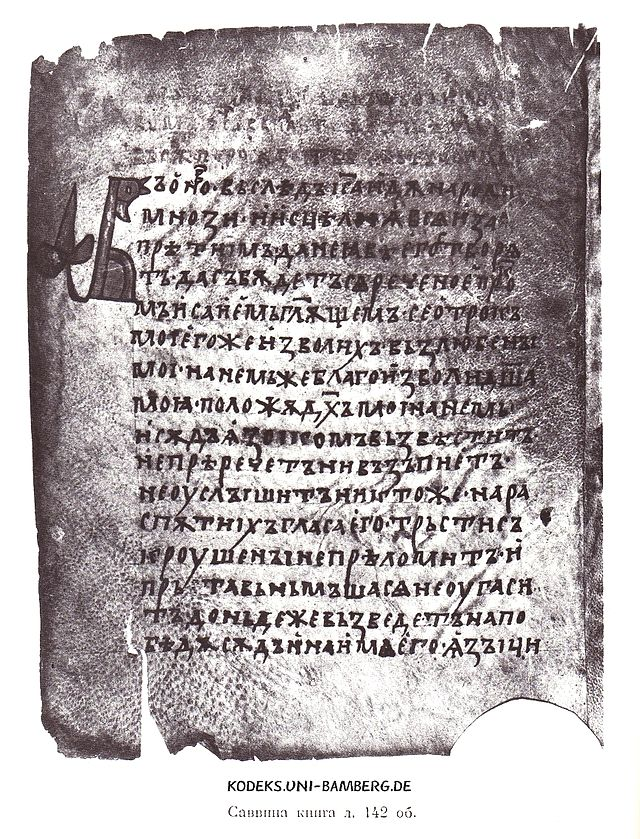 Въ оно · въ слѣдъ і҃са идѫ народи
мнози · и исцѣли ѩ вьсѧ и за
прѣти имъ да не авѣ его творѧ
тъ · да събѫдетъ сѧ реченое про
мъ исаиемь гл҃ѭщемъ · се отрокъ
мои егоже изволихъ възлюбены
мои · на немьже благоизволи д҃ша
моꙗ · положѫ д҃хъ мои на немь
и сѫдъ ѩзꙑкомъ възвѣститъ
не прѣречетъ ни възъпиетъ ·
не оуслъішитъ никтоже · на ра
спѫтиіхъ гласа его · трьсти съ
кроушенъі не прѣломитъ · и
пръта вьнѣмъша сѧ не оугаси
тъ доньдеже възведетъ на по
бѣдѫ сѫдъ и на имѧ его · ѩзъіци
KODEKS.UNI-BAMBERG.DE
Саввина книга л. 142 об.